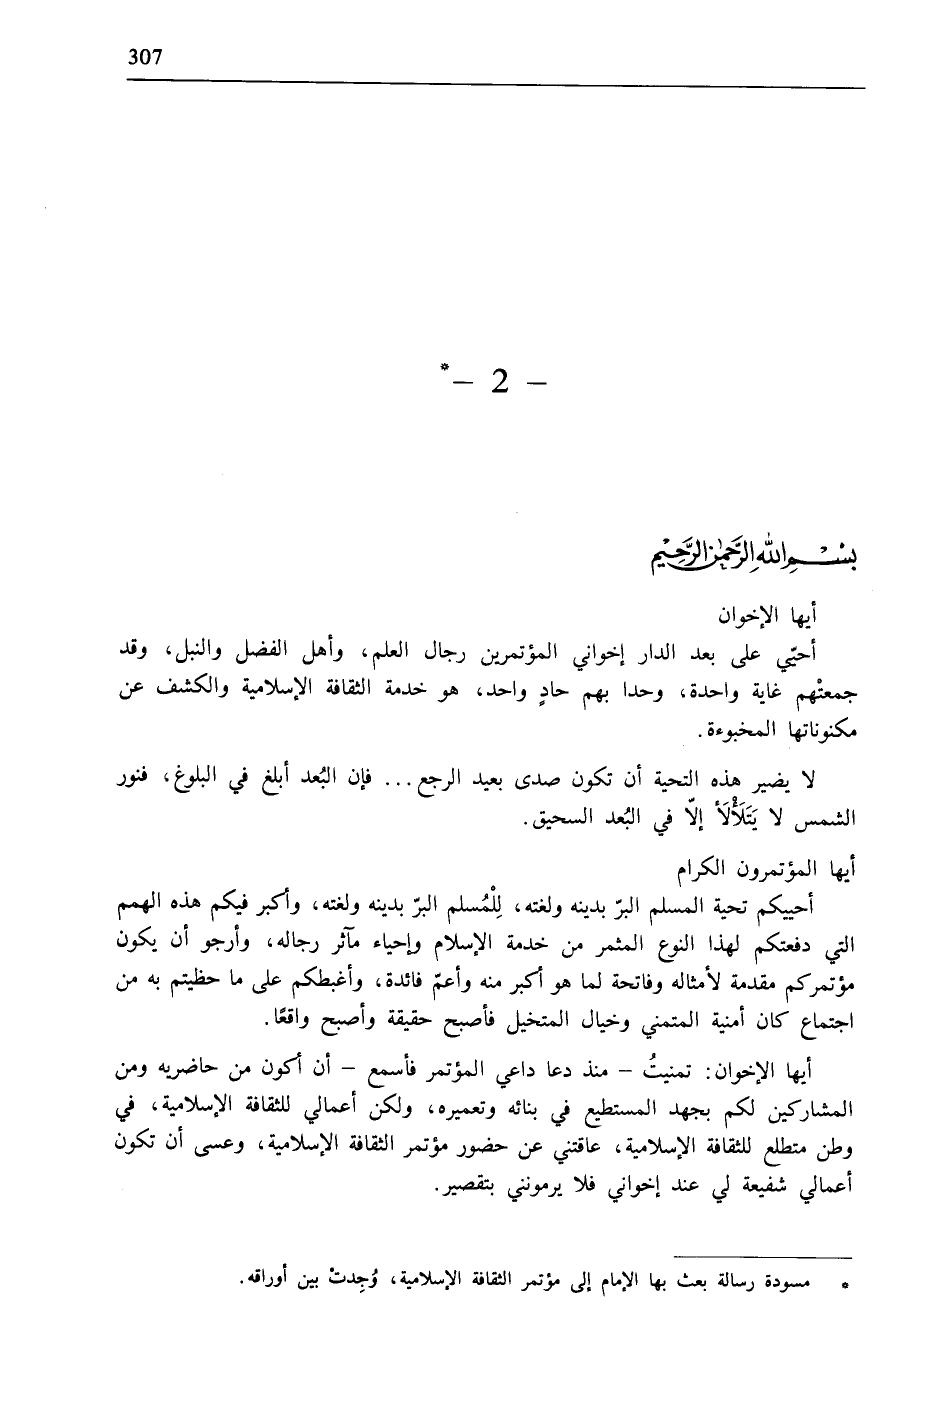 307
– 2 –*
بسم الله الرحمن الرحيم
أيها الإخوان
أحيّي على بعد الدار إخواني المؤتمرين رجال العلم، وأهل الفضل والنبل، وقد
جمعتْهم غاية واحدة، وحدا بهم حادٍ واحد، هو خدمة الثقافة الإسلامية والكشف عن
مكنوناتها المخبوءة.
لا يضير هذه التحية أن تكون صدى بعيد الرجع... فإن البُعد أبلغ في البلوغ، فنور
الشمس لا يَتَلَأْلَأ إلّا في البُعد السحيق.
أيها المؤتمرون الكرام
أحييكم تحية المسلم البرّ بدينه ولغته، لِلْمُسلم البرّ بدينه ولغته، وأكبر فيكم هذه الهمم
التي دفعتكم لهذا النوع المثمر من خدمة الإسلام وإحياء مآثر رجاله، وأرجو أن يكون
مؤتمركم مقدمة لأمثاله وفاتحة لما هو أكبر منه وأعمّ فائدة، وأغبطكم على ما حظيتم به من
اجتماع كان أمنية المتمني وخيال المتخيل فأصبح حقيقة وأصبح واقعًا.
أيها الإخوان: تمنيتُ – منذ دعا داعي المؤتمر فأسمع – أن أكون من حاضريه ومن
المشاركين لكم بجهد المستطيع في بنائه وتعميره، ولكن أعمالي للثقافة الإسلامية، في
وطن متطلع للثقافة الإسلامية، عاقتني عن حضور مؤتمر الثقافة الإسلامية، وعسى أن تكون
أعمالي شفيعة لي عند إخواني فلا يرمونني بتقصير.
* مسودة رسالة بعث بها الإمام إلى مؤتمر الثقافة الإسلامية، وُجِدتْ بين أوراقه.